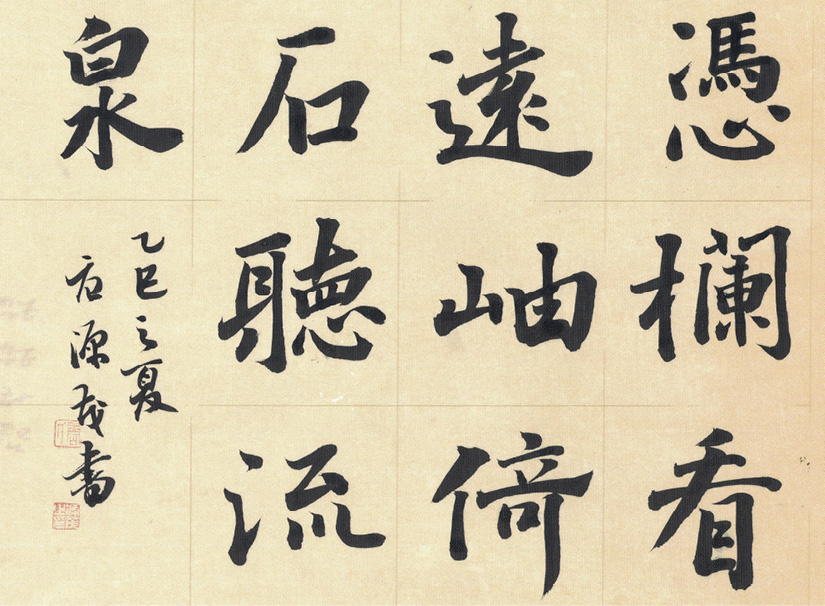 憑欄看
遠岫倚
石聽流
泉
乙巳之夏
源書